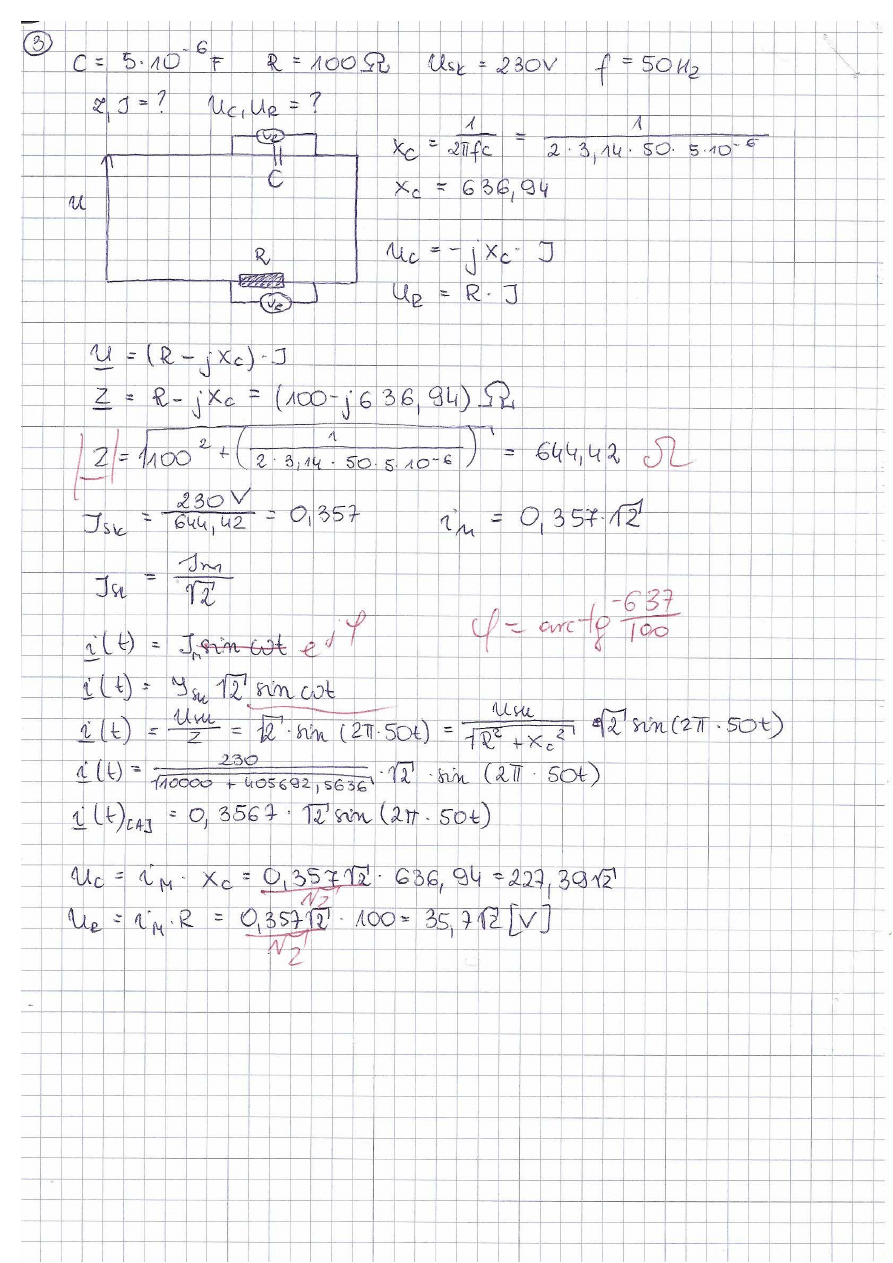 3
C = 5·10⁻⁶ F R = 100 Ω Usk = 230V f = 50Hz
Z, I = ? Uc, UR = ?
Vc
C
U
R
Vc
Xc = 1/(2πfc) = 1/(2·3,14·50·5·10⁻⁶)
Xc = 636,94
Uc = -jXc · I
UR = R · I
U = (R - jXc) · I
Z = R - jXc = (100 - j636,94) Ω
|Z| = √(100² + (1/(2·3,14·50·5·10⁻⁶))²) = 644,42 Ω
Isk = 230V/644,42 = 0,357 iM = 0,357·√2
Isk = Im/√2
φ = arctg -637/100
i(t) = Im sin ωt e^jφ
i(t) = Isk √2 sin ωt
i(t) = Usk/Z = √2 · sin (2π·50t) = Usk/√(R² + Xc²) · √2 sin (2π·50t)
i(t) = 230/√(10000 + 405692,5636) · √2 · sin (2π · 50t)
i(t)[A] = 0,3567 · √2 sin (2π · 50t)
Uc = iM · Xc = 0,357√2 · 636,94 = 227,39√2
√2
UR = iM · R = 0,357√2 · 100 = 35,7√2 [V]
√2